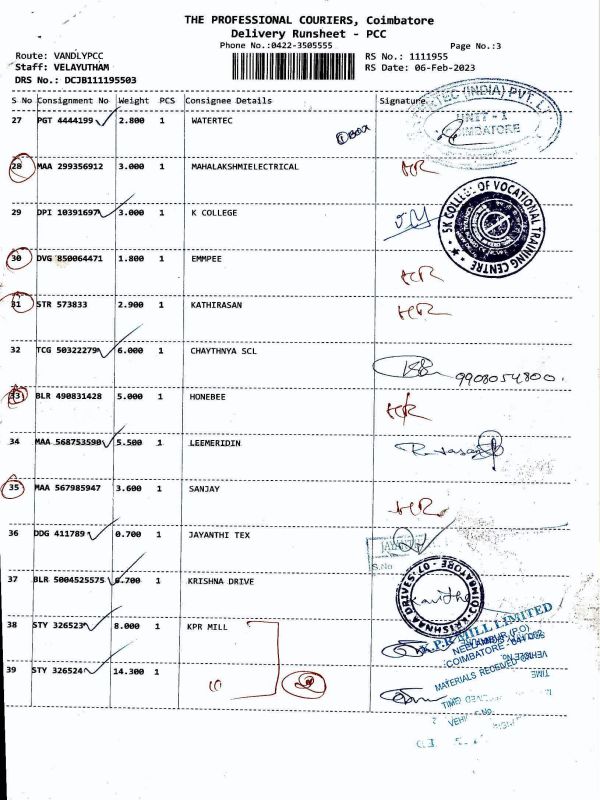 THE PROFESSIONAL COURIERS, Coimbatore
Delivery Runsheet - PCC
Phone No.:0422-3505555
Page No.:3
Route: VANDLYPCC
Staff: VELAYUTHAM
DRS No.: DCJB111195503
RS No.: 1111955
RS Date: 06-Feb-2023
S No Consignment No Weight PCS Consignee Details Signature
27 PGT 4444199 2.800 1 WATERTEC
1 BOX
UNIT - 1
28 MAA 299356912 3.000 1 MAHALAKSHMIELECTRICAL HR
29 DPI 10391697 3.000 1 K COLLEGE
SK COLLEGE OF VOCATIONAL TRAINING CENTRE
30 DVG 850064471 1.800 1 EMMPEE HR
31 STR 573833 2.900 1 KATHIRASAN HR
32 TCG 50322279 6.000 1 CHAYTHNYA SCL 9908054800.
33 BLR 490831428 5.000 1 HONEBEE HR
34 MAA 568753590 5.500 1 LEEMERIDIN
35 MAA 567985947 3.600 1 SANJAY HR
36 DDG 411789 0.700 1 JAYANTHI TEX
S.No
37 BLR 5004525575 6.700 1 KRISHNA DRIVE
38 STY 326523 8.000 1 KPR MILL
K.P.R MILL LIMITED
COIMBATORE
MATERIALS RECEIVED
39 STY 326524 14.300 1
2
TIME